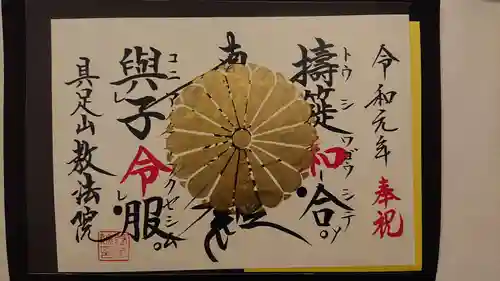 令和元年 奉祝
トウ シ ワゴウ シテ
擣簁和合。
南
コニア
クゼシム
與子令服。
具足山 教法院